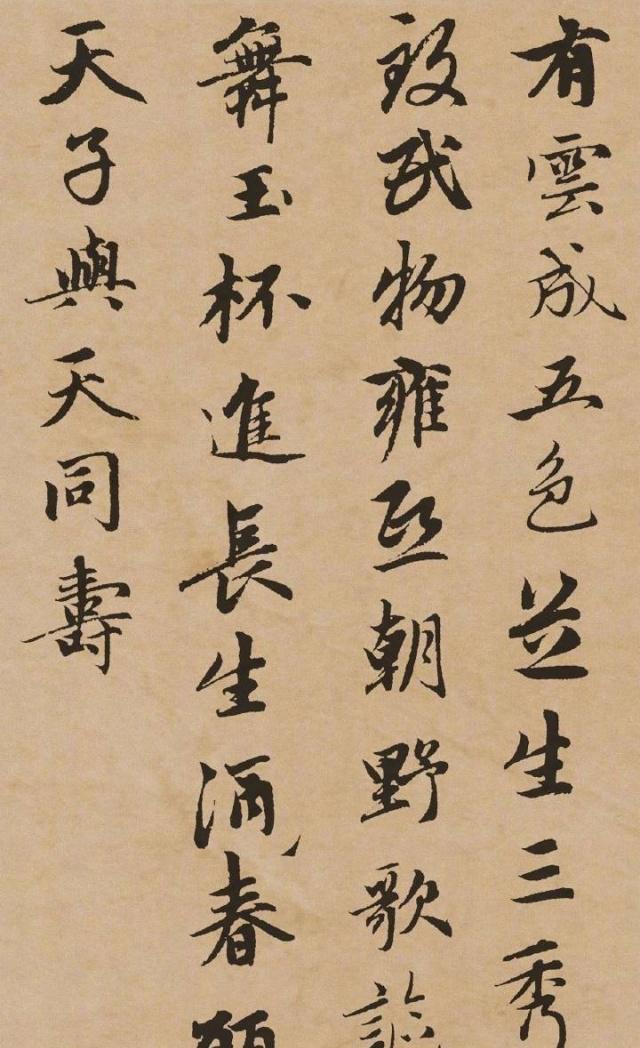 有雲成五色芝生三秀
致民物雍熙朝野歌謠
舞玉杯進長生酒春願
天子與天同壽